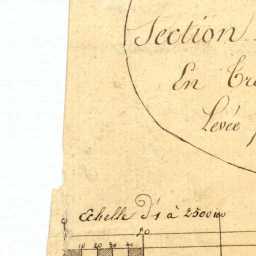 Section
En
Levée
Echelle d's à 2500
50
10 20 30 40